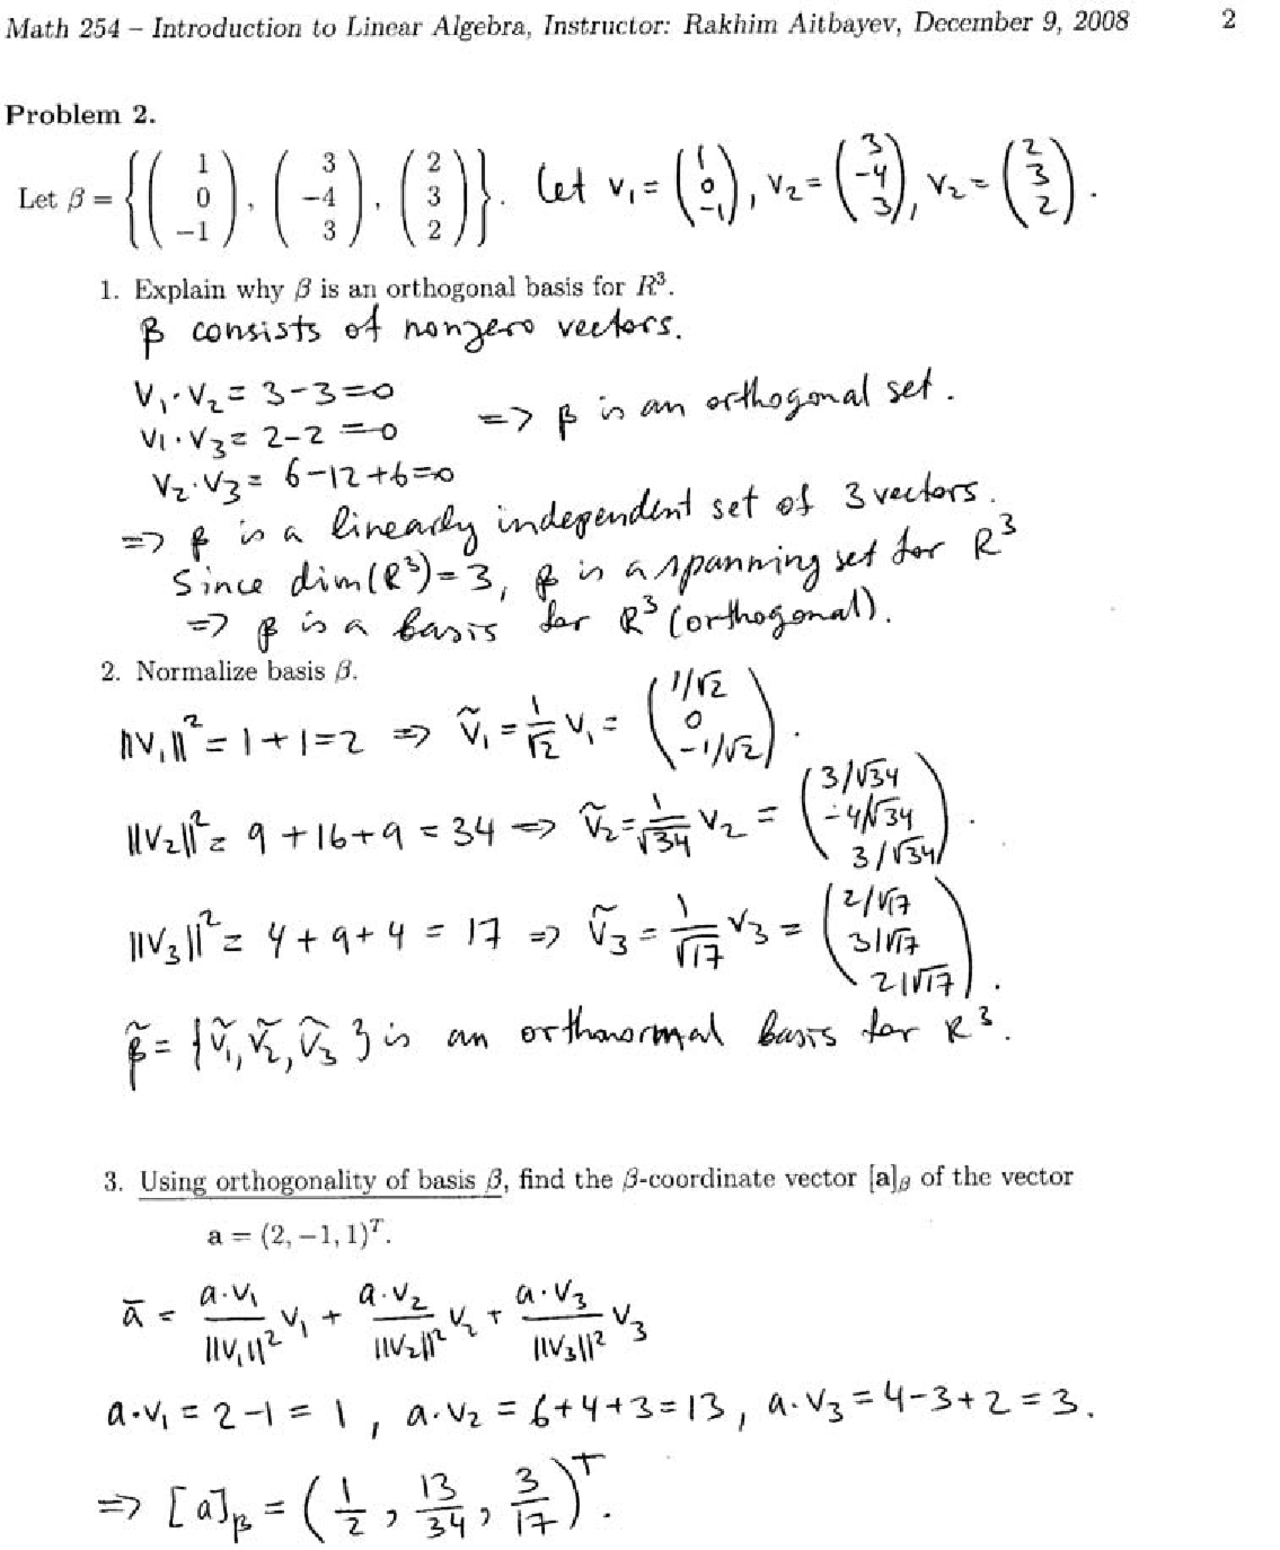 Math 254 – Introduction to Linear Algebra, Instructor: Rakhim Aitbayev, December 9, 2008 2
Problem 2.
Let β = {(1, 0, −1), (3, −4, 3), (2, 3, 2)}. Let v₁ = (1, 0, −1), v₂ = (3, −4, 3), v₂ = (2, 3, 2).
1. Explain why β is an orthogonal basis for R³.
β consists of nonzero vectors.
v₁·v₂ = 3−3=0
v₁·v₃ = 2−2 =0 => β is an orthogonal set.
v₂·v₃ = 6−12+6=0
=> β is a linearly independent set of 3 vectors.
Since dim(R³)=3, β is a spanning set for R³
=> β is a basis for R³ (orthogonal).
2. Normalize basis β.
||v₁||² = 1+1=2 => ṽ₁ = 1/√2 v₁ = (1/√2, 0, −1/√2).
||v₂||² = 9+16+9 = 34 => ṽ₂ = 1/√34 v₂ = (3/√34, −4/√34, 3/√34).
||v₃||² = 4+9+4 = 17 => ṽ₃ = 1/√17 v₃ = (2/√17, 3/√17, 2/√17).
β̃ = {ṽ₁, ṽ₂, ṽ₃} is an orthonormal basis for R³.
3. Using orthogonality of basis β, find the β-coordinate vector [a]ᵦ of the vector
a = (2, −1, 1)ᵀ.
ā = a·v₁/||v₁||² v₁ + a·v₂/||v₂||² v₂ + a·v₃/||v₃||² v₃
a·v₁ = 2−1 = 1, a·v₂ = 6+4+3=13, a·v₃ = 4−3+2 = 3.
=> [a]ᵦ = (1/2, 13/34, 3/17)ᵀ.